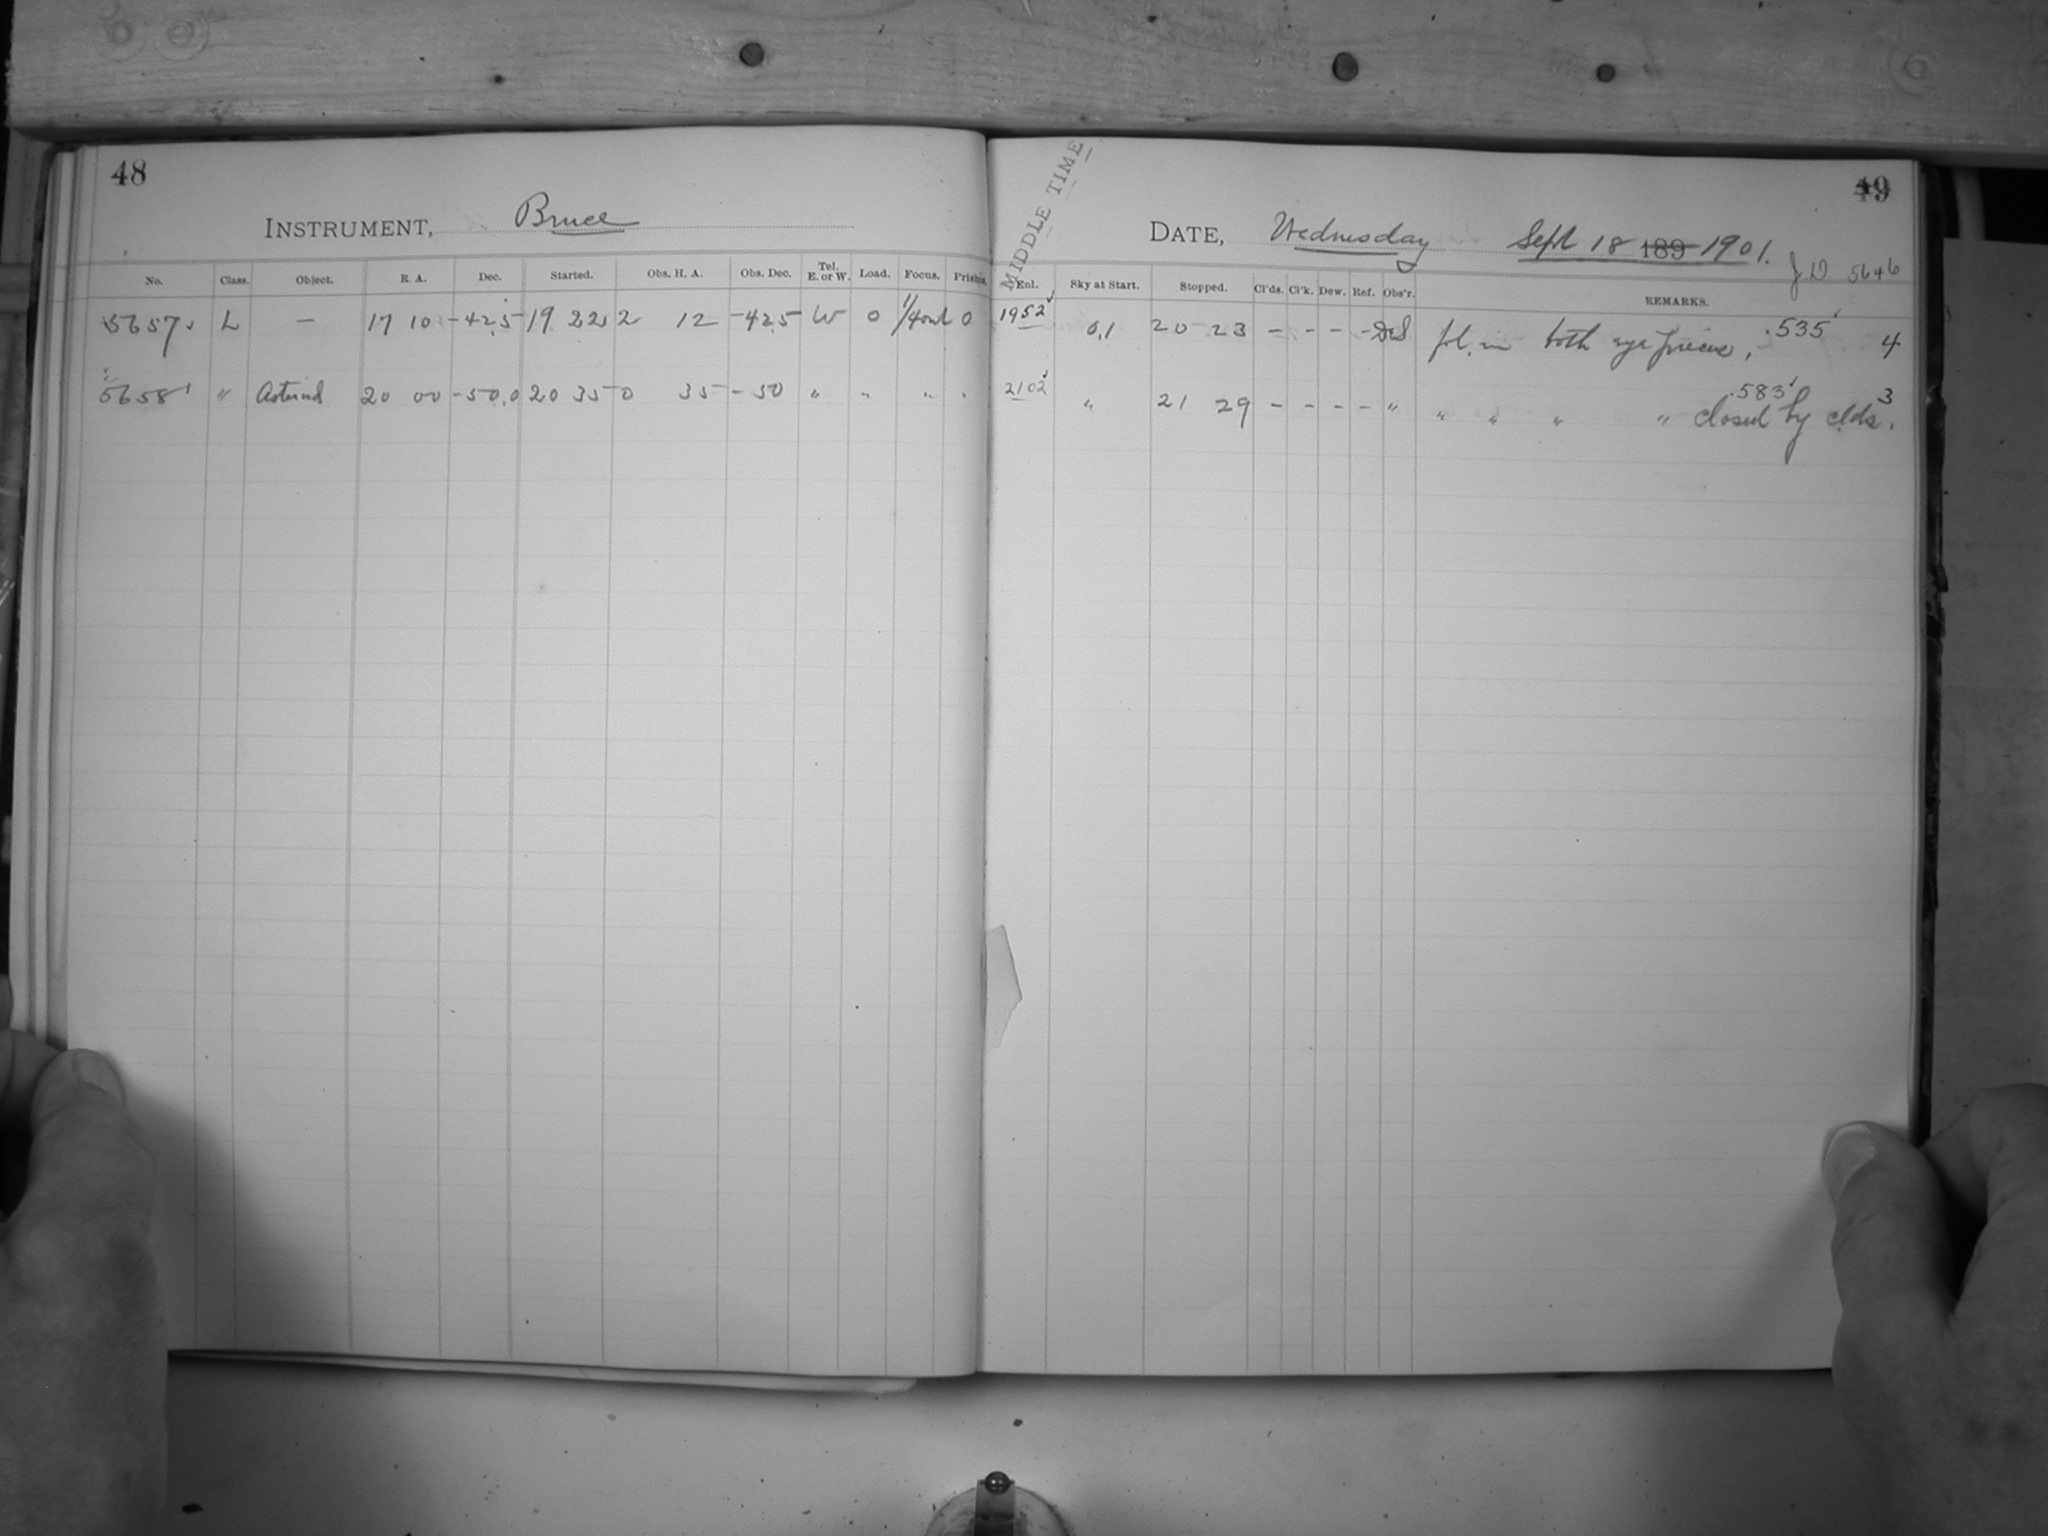 48
INSTRUMENT, Bruce
No. Class. Object. R. A. Dec. Started. Obs. H. A. Obs. Dec. Tel. E. or W. Load. Focus. Prisms.
5657 L — 17 10 -42.5 19 22 2 12 -42.5 W 0 1/4 out 0
5658 " Asteroid 20 00 -50.0 20 35 0 35 -50 " " " "
49
MIDDLE TIME
DATE, Wednesday Sept 18 189 1901.
J.D 5646
Enl. Sky at Start. Stopped. Cl'ds. Cl'k. Dew. Ref. Obs'r. REMARKS.
1952 0.1 20 23 - - - - in both eye pieces, .535 4
2102 " 21 29 - - - - " " " " " closed by clds. .583 3